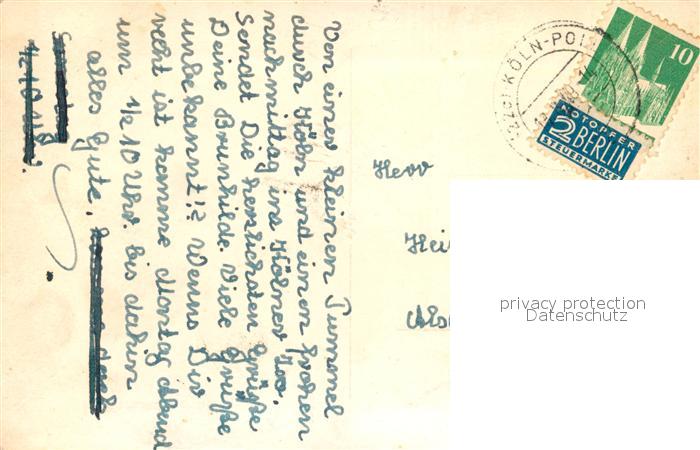 Von einer kleinen Tummel
durch Köln und einem frohen
nachmittag im Kölner Zoo.
Sendet Die herzlichsten Grüße
Deine Brunhilde. Viele Grüße
unbekannt!? Wenns Dir
recht ist komme Montag Abend
um 1/2 10 Uhr. bis dahin
alles Gute,
Herr
Hei
KÖLN-POL
10
NOTOPFER
2 BERLIN
STEUERMARKE
privacy protection
Datenschutz